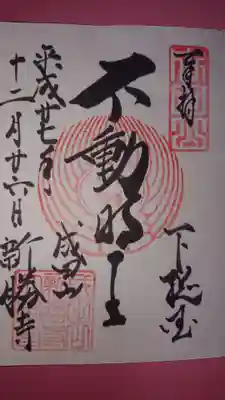 奉拝
下総国
不動明王
成田山
平成廿七年
十二月廿六日
新勝寺